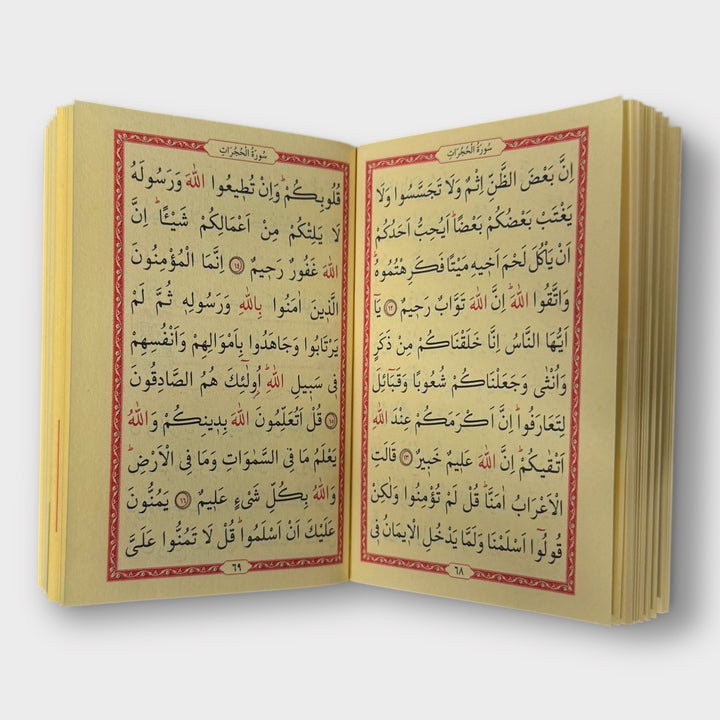 سُورَةُ الْحُجُرَاتِ
اِنَّ بَعْضَ الظَّنِّ اِثْمٌ وَلَا تَجَسَّسُوا وَلَا
يَغْتَبْ بَعْضُكُمْ بَعْضًاۜ اَيُحِبُّ اَحَدُكُمْ
اَنْ يَأْكُلَ لَحْمَ اَخ۪يهِ مَيْتًا فَكَرِهْتُمُوهُۜ
وَاتَّقُوا اللّٰهَۜ اِنَّ اللّٰهَ تَوَّابٌ رَح۪يمٌ ﴿١٢﴾ يَٓا
اَيُّهَا النَّاسُ اِنَّا خَلَقْنَاكُمْ مِنْ ذَكَرٍ
وَاُنْثٰى وَجَعَلْنَاكُمْ شُعُوبًا وَقَبَٓائِلَ
لِتَعَارَفُواۜ اِنَّ اَكْرَمَكُمْ عِنْدَ اللّٰهِ
اَتْقٰيكُمْۜ اِنَّ اللّٰهَ عَل۪يمٌ خَب۪يرٌ ﴿١٣﴾ قَالَتِ
الْاَعْرَابُ اٰمَنَّاۜ قُلْ لَمْ تُؤْمِنُوا وَلٰكِنْ
قُولُٓوا اَسْلَمْنَا وَلَمَّا يَدْخُلِ الْا۪يمَانُ ف۪ي
٦٨
سُورَةُ الْحُجُرَاتِ
قُلُوبِكُمْۜ وَاِنْ تُط۪يعُوا اللّٰهَ وَرَسُولَهُ
لَا يَلِتْكُمْ مِنْ اَعْمَالِكُمْ شَيْـًٔاۜ اِنَّ
اللّٰهَ غَفُورٌ رَح۪يمٌ ﴿١٤﴾ اِنَّمَا الْمُؤْمِنُونَ
الَّذ۪ينَ اٰمَنُوا بِاللّٰهِ وَرَسُولِه۪ ثُمَّ لَمْ
يَرْتَابُوا وَجَاهَدُوا بِاَمْوَالِهِمْ وَاَنْفُسِهِمْ
ف۪ي سَب۪يلِ اللّٰهِۜ اُو۬لٰٓئِكَ هُمُ الصَّادِقُونَ
﴿١٥﴾ قُلْ اَتُعَلِّمُونَ اللّٰهَ بِد۪ينِكُمْ وَاللّٰهُ
يَعْلَمُ مَا فِي السَّمٰوَاتِ وَمَا فِي الْاَرْضِۜ
وَاللّٰهُ بِكُلِّ شَيْءٍ عَل۪يمٌ ﴿١٦﴾ يَمُنُّونَ
عَلَيْكَ اَنْ اَسْلَمُواۜ قُلْ لَا تَمُنُّوا عَلَيَّ
٦٩